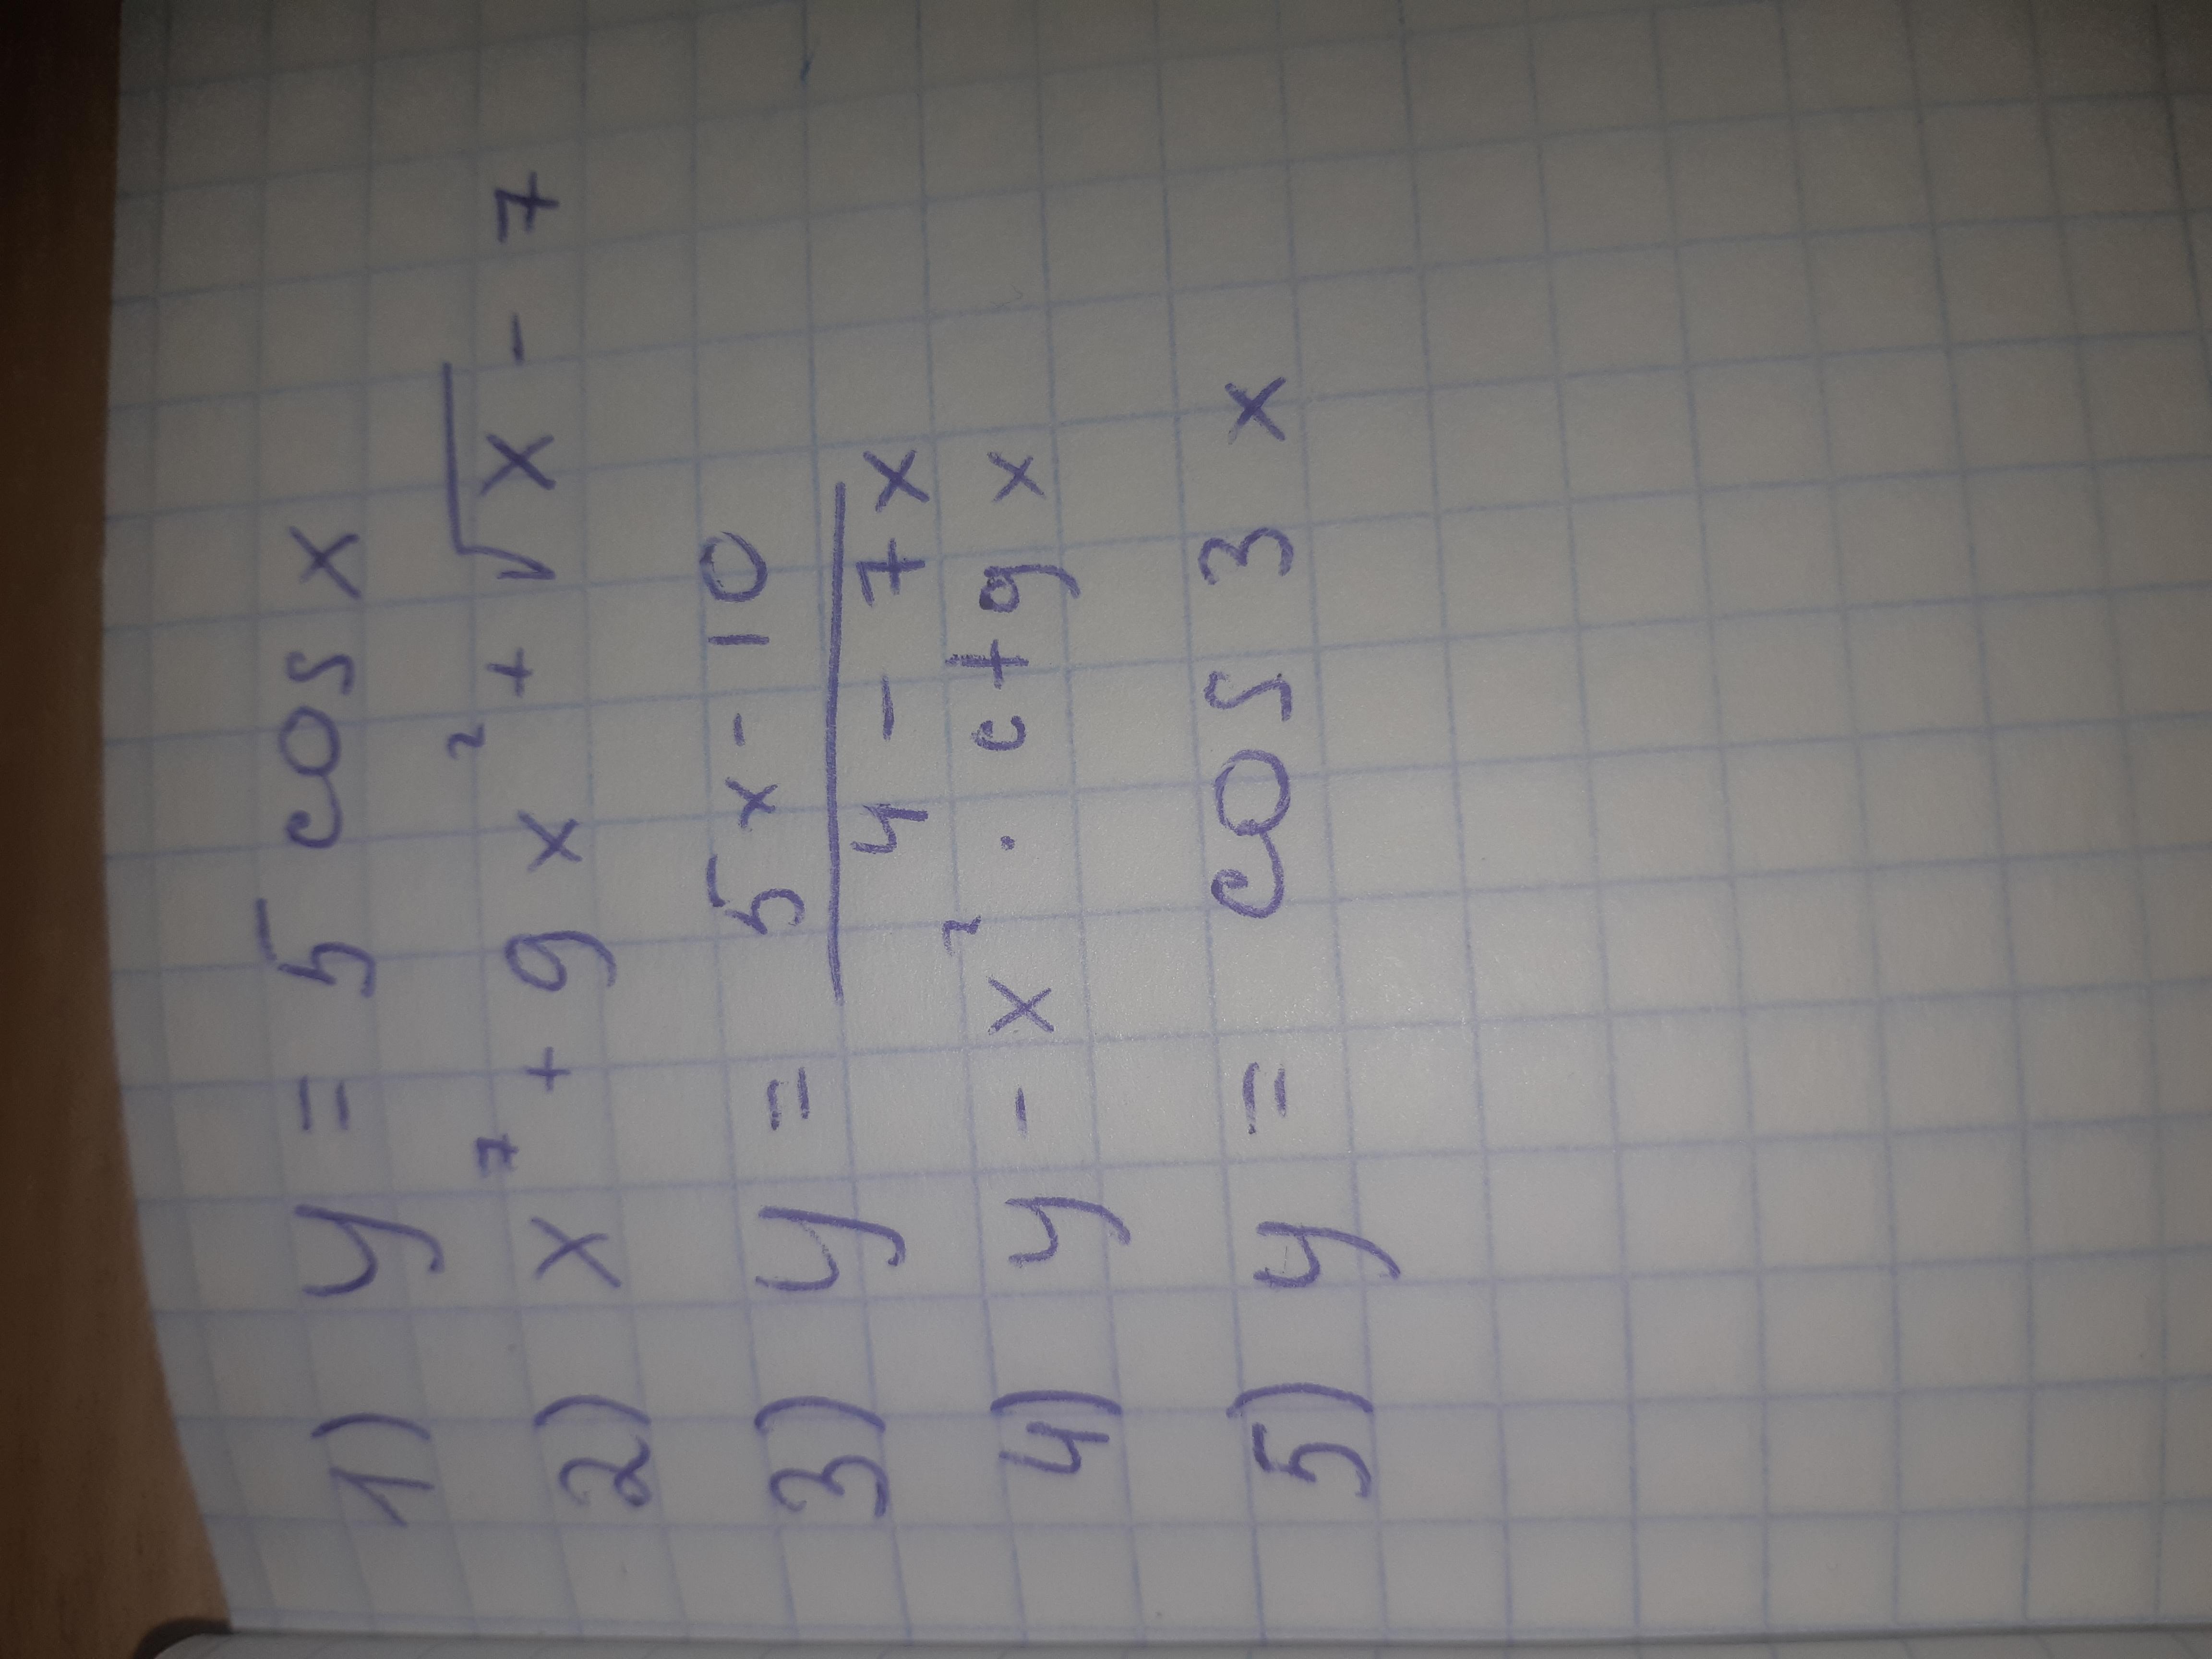 1) y = 5 cos x
2) x⁷ + 9x² + √x - 7
3) y = (5x - 10)/(4 - 7x)
4) y - x² · ctg x
5) y = cos 3x